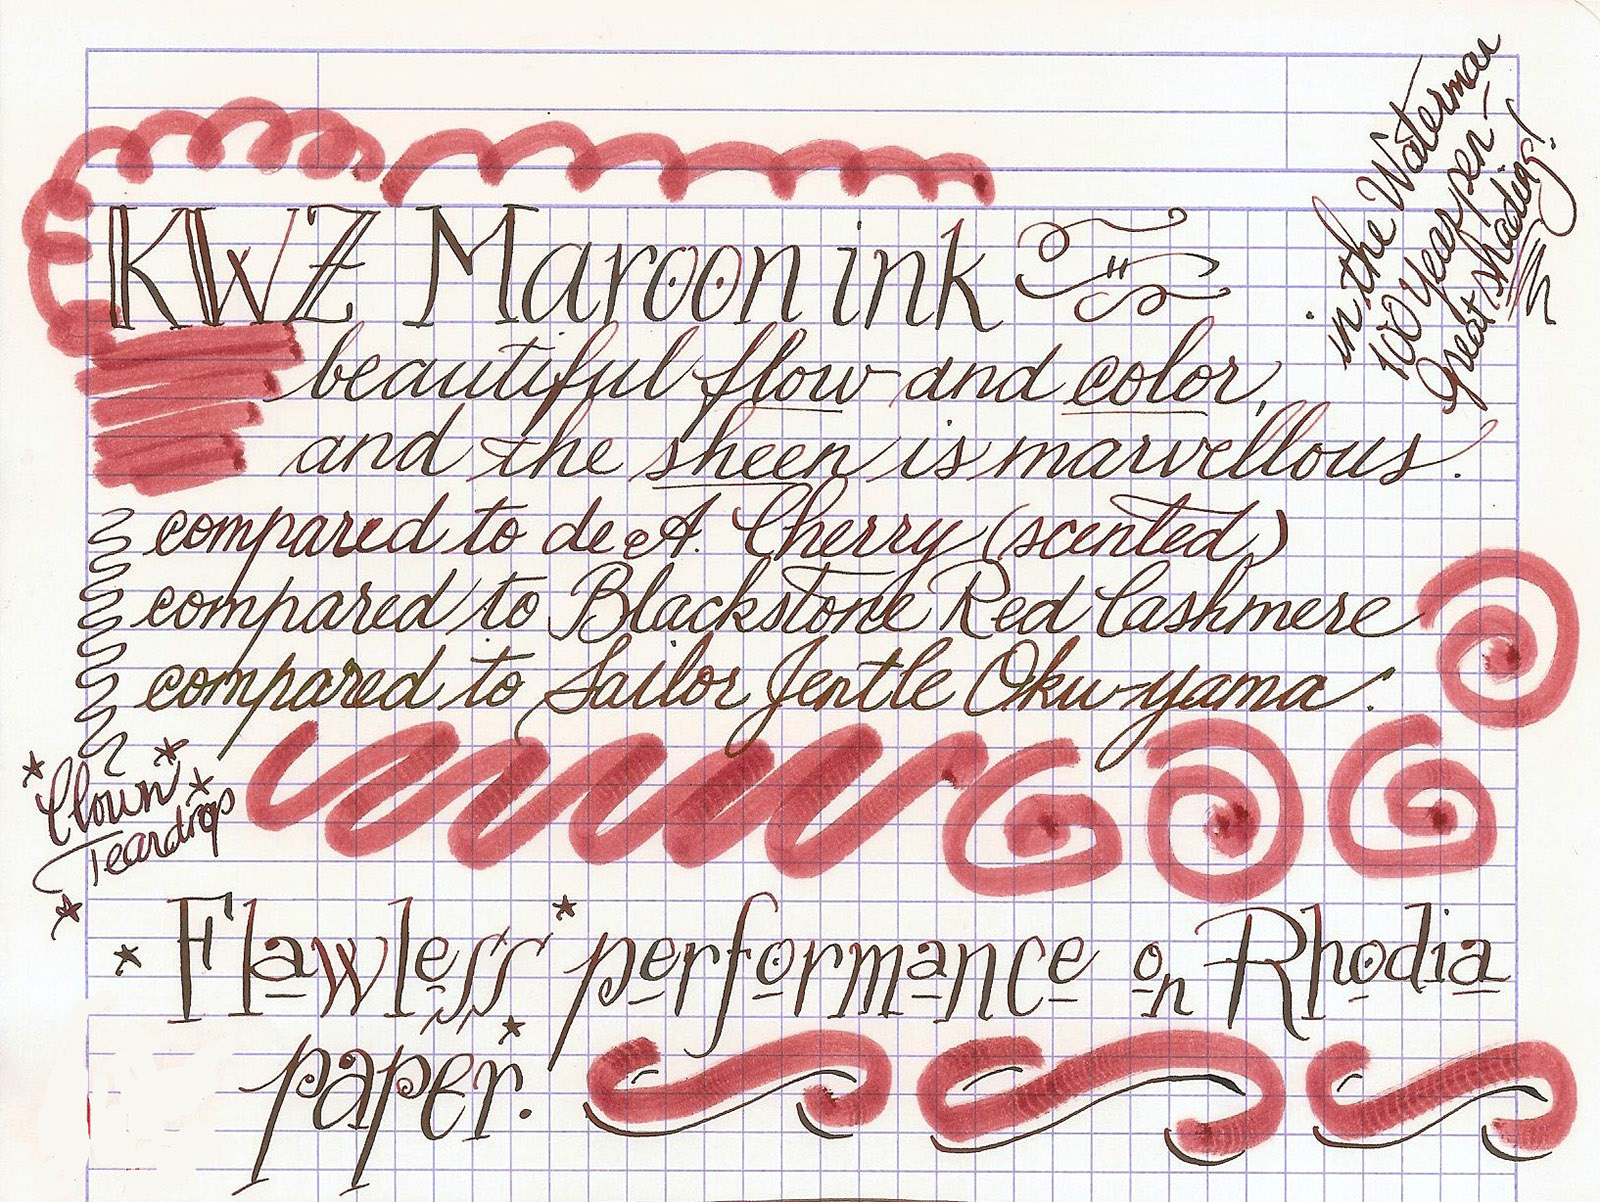 KWZ Maroon ink
in the Waterman
100 Year pen -
great shading!
beautiful flow and color,
and the sheen is marvellous.
compared to de A. Cherry (scented)
compared to Blackstone Red Cashmere
compared to Sailor Jentle Oku-yama.
Clown
Teardrops
Flawless performance on Rhodia
paper.